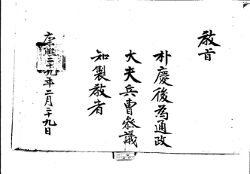 教旨
朴慶後為通政
大夫兵曹參議
知製教者
康熙二十九年二月二十九日